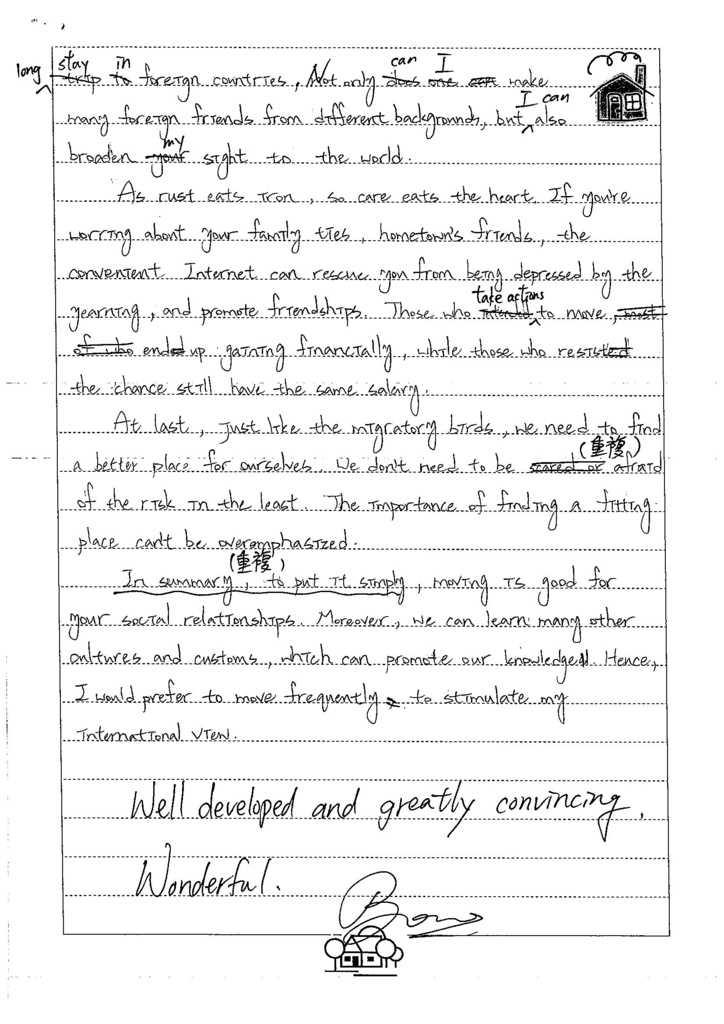 long stay in
trip to foreign countries, Not only does one can make
can I
many foreign friends from different backgrounds, but also
I can
broaden your sight to the world.
my
As rust eats iron, so care eats the heart. If you're
worring about your family ties, hometown's friends, the
convenient Internet can rescue you from being depressed by the
yearning, and promote friendships. Those who intended to move, most
take actions
of who ended up gaining financially, while those who resisted
the chance still have the same salary.
At last, just like the migratory birds, we need to find
a better place for ourselves. We don't need to be scared or afraid
(重複)
of the risk in the least. The importance of finding a fitting
place can't be overemphasized.
(重複)
In summary, to put it simply, moving is good for
your social relationships. Moreover, we can learn many other
cultures and customs, which can promote our knowledge. Hence,
I would prefer to move frequently to stimulate my
international view.
Well developed and greatly convincing.
Wonderful.